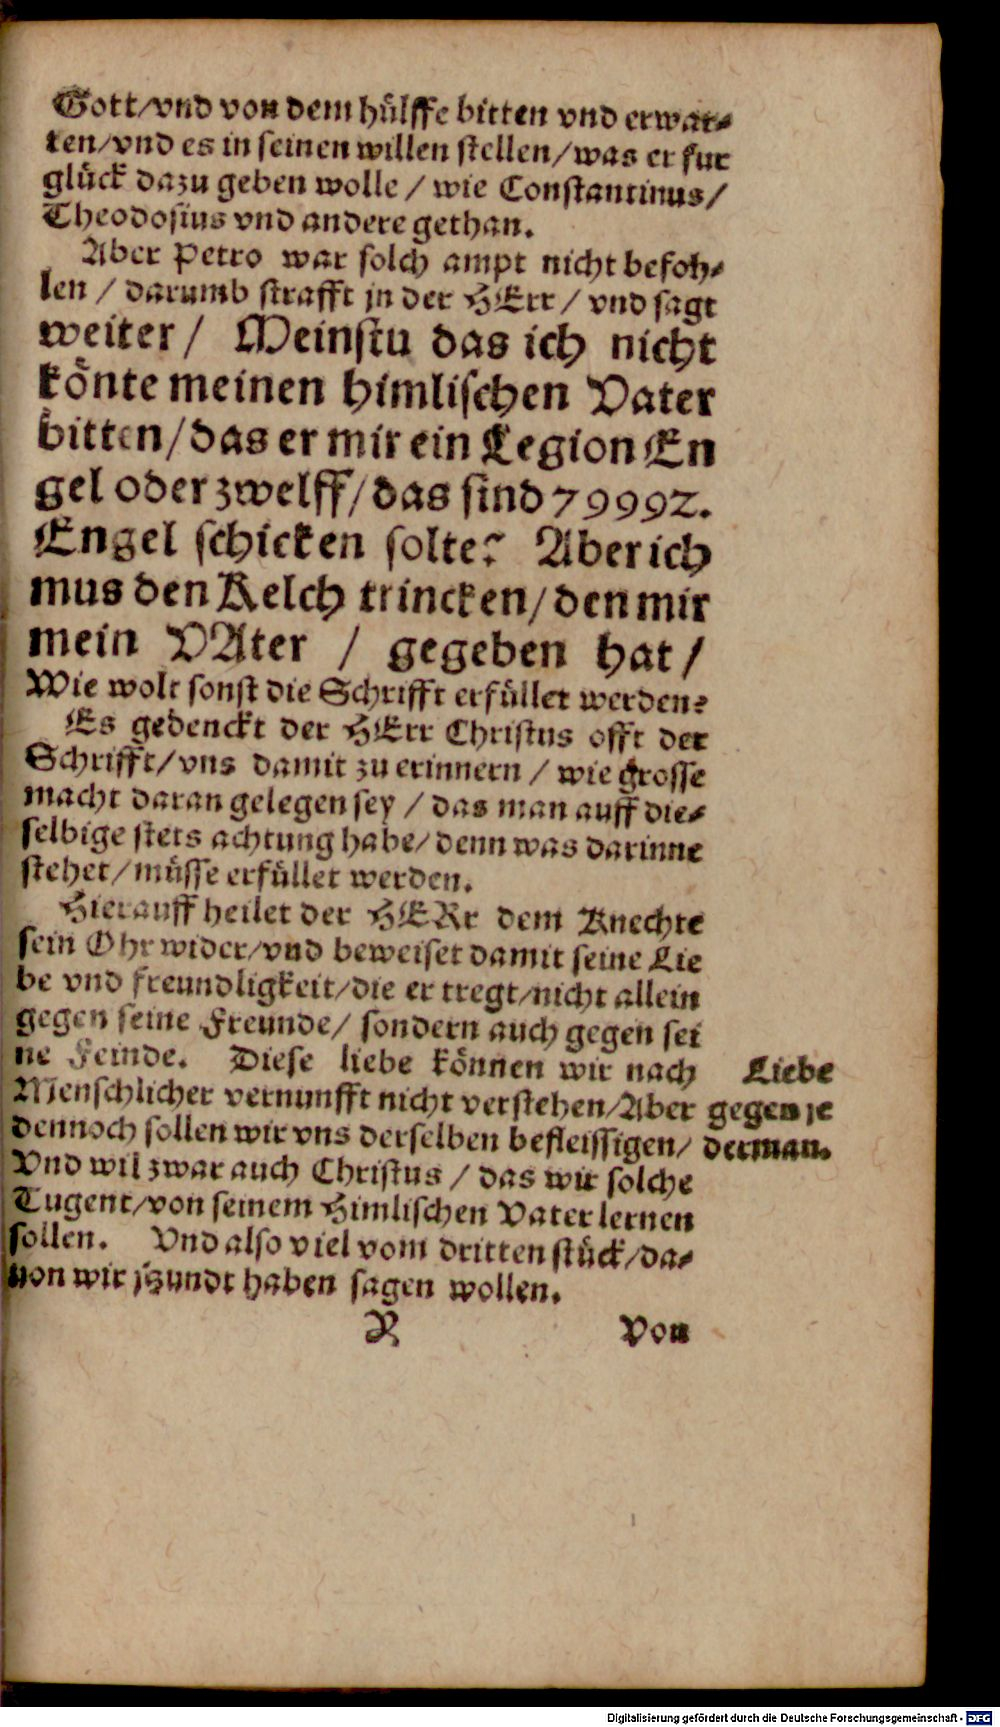 Gott/vnd von dem hülffe bitten vnd erwar-
ten/vnd es in seinen willen stellen/was er fur
glück dazu geben wolle / wie Constantinus/
Theodosius vnd andere gethan.
Aber Petro war solch ampt nicht befoh-
len / darumb strafft jn der HErr / vnd sagt
weiter/ Meinstu das ich nicht
könte meinen himlischen Vater
bitten/das er mir ein Legion En
gel oder zwelff/das sind 79992.
Engel schicken solte? Aber ich
mus den Kelch trincken/den mir
mein VAter / gegeben hat/
Wie wolt sonst die Schrifft erfüllet werden?
Es gedenckt der HErr Christus offt der
Schrifft/vns damit zu erinnern / wie grosse
macht daran gelegen sey / das man auff die-
selbige stets achtung habe/denn was darinne
stehet/müsse erfüllet werden.
Hierauff heilet der HERr dem Knechte
sein Ohr wider/vnd beweiset damit seine Lie
be vnd freundligkeit/die er tregt/nicht allein
gegen seine Freunde/ sondern auch gegen sei
ne Feinde. Diese liebe können wir nach
Menschlicher vernunfft nicht verstehen/Aber
dennoch sollen wir vns derselben befleissigen/
Vnd wil zwar auch Christus / das wir solche
Tugent/von seinem Himlischen Vater lernen
sollen. Vnd also viel vom dritten stück/da-
uon wir jtzundt haben sagen wollen.
Liebe
gegen je
derman.
R Von
Digitalisierung gefördert durch die Deutsche Forschungsgemeinschaft - DFG